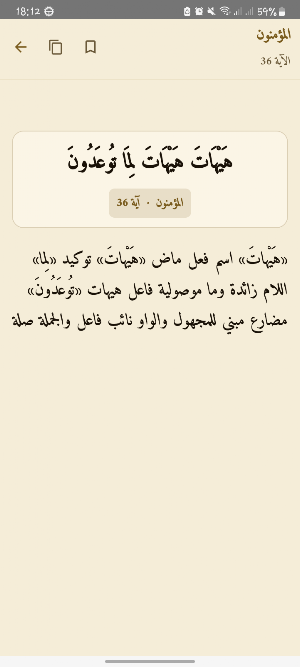 18:12
59%
المؤمنون
الآية 36
هَيْهَاتَ هَيْهَاتَ لِمَا تُوعَدُونَ
المؤمنون · آية 36
«هَيْهاتَ» اسم فعل ماض «هَيْهاتَ» توكيد «لِما»
اللام زائدة وما موصولية فاعل هيهات «تُوعَدُونَ»
مضارع مبني للمجهول والواو نائب فاعل والجملة صلة